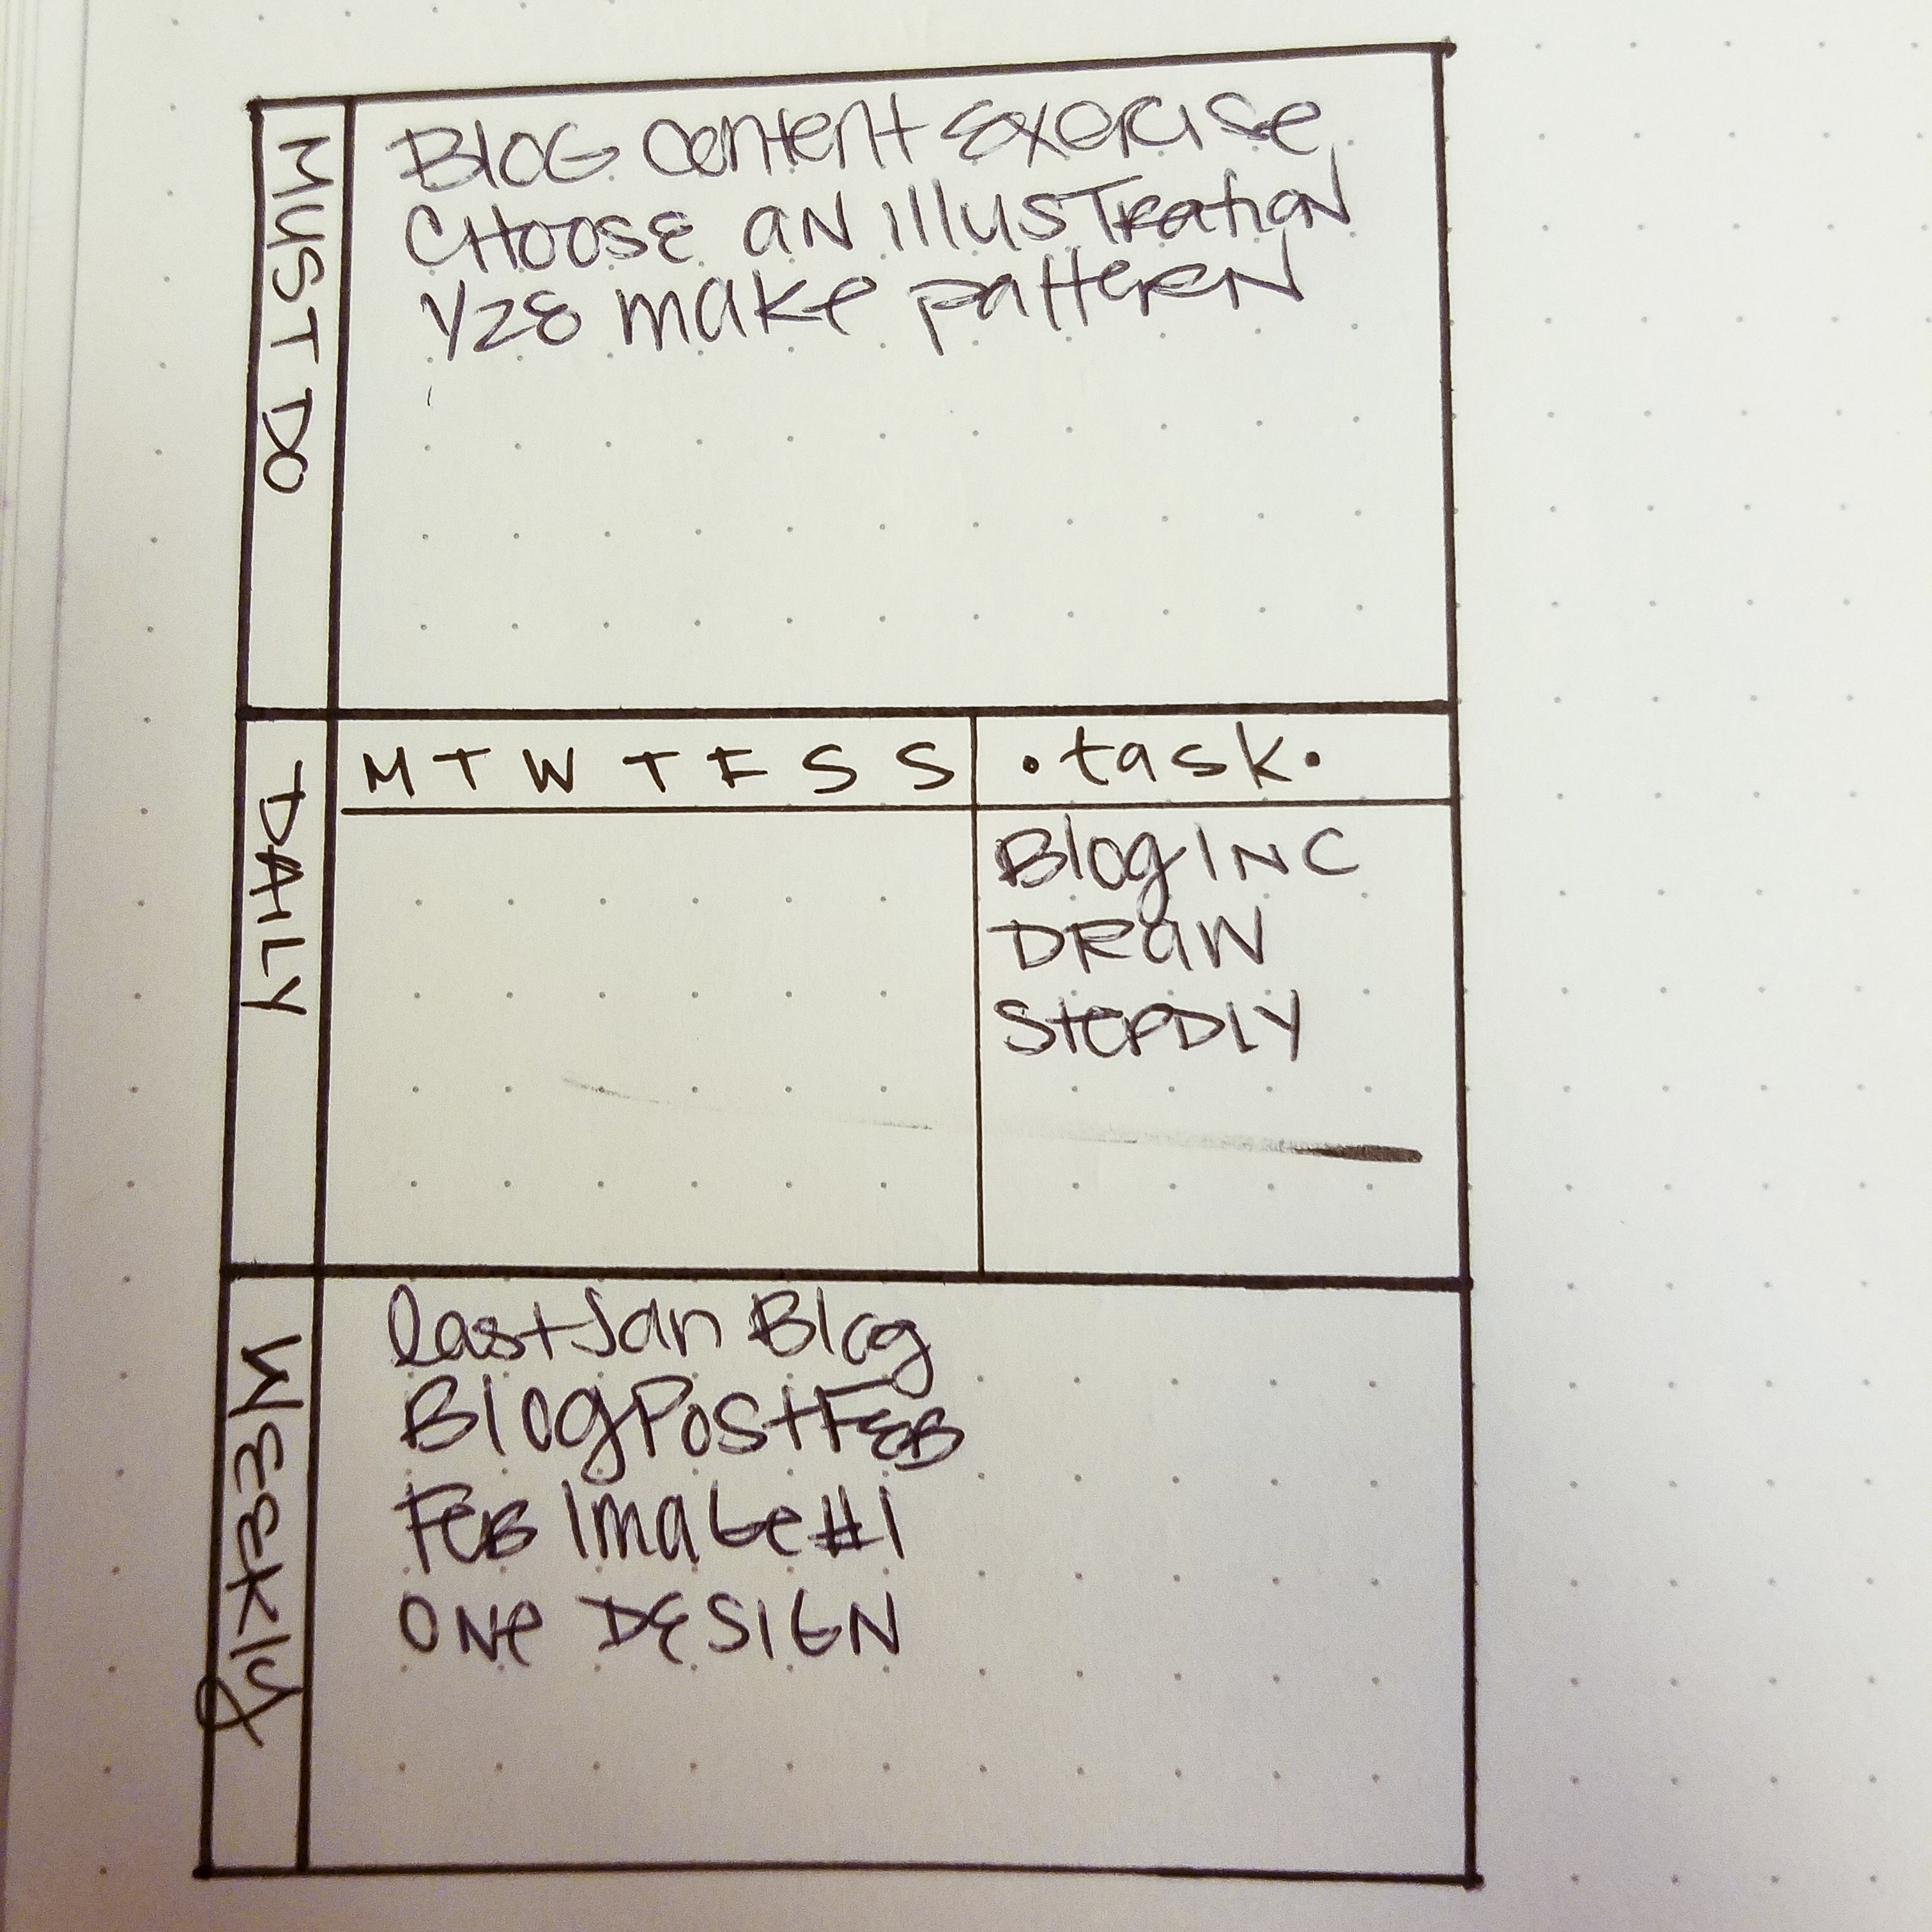 MUST DO
BLOG content Exercise
CHOOSE aN illUSTRatiON
YZE make patteRN
DAILY
M T W T F S S
•task•
BlogINC
DRaW
StepDLY
WEEKly
last Jan Blog
BlogPostFEB
FeB Image#1
ONe DESIGN